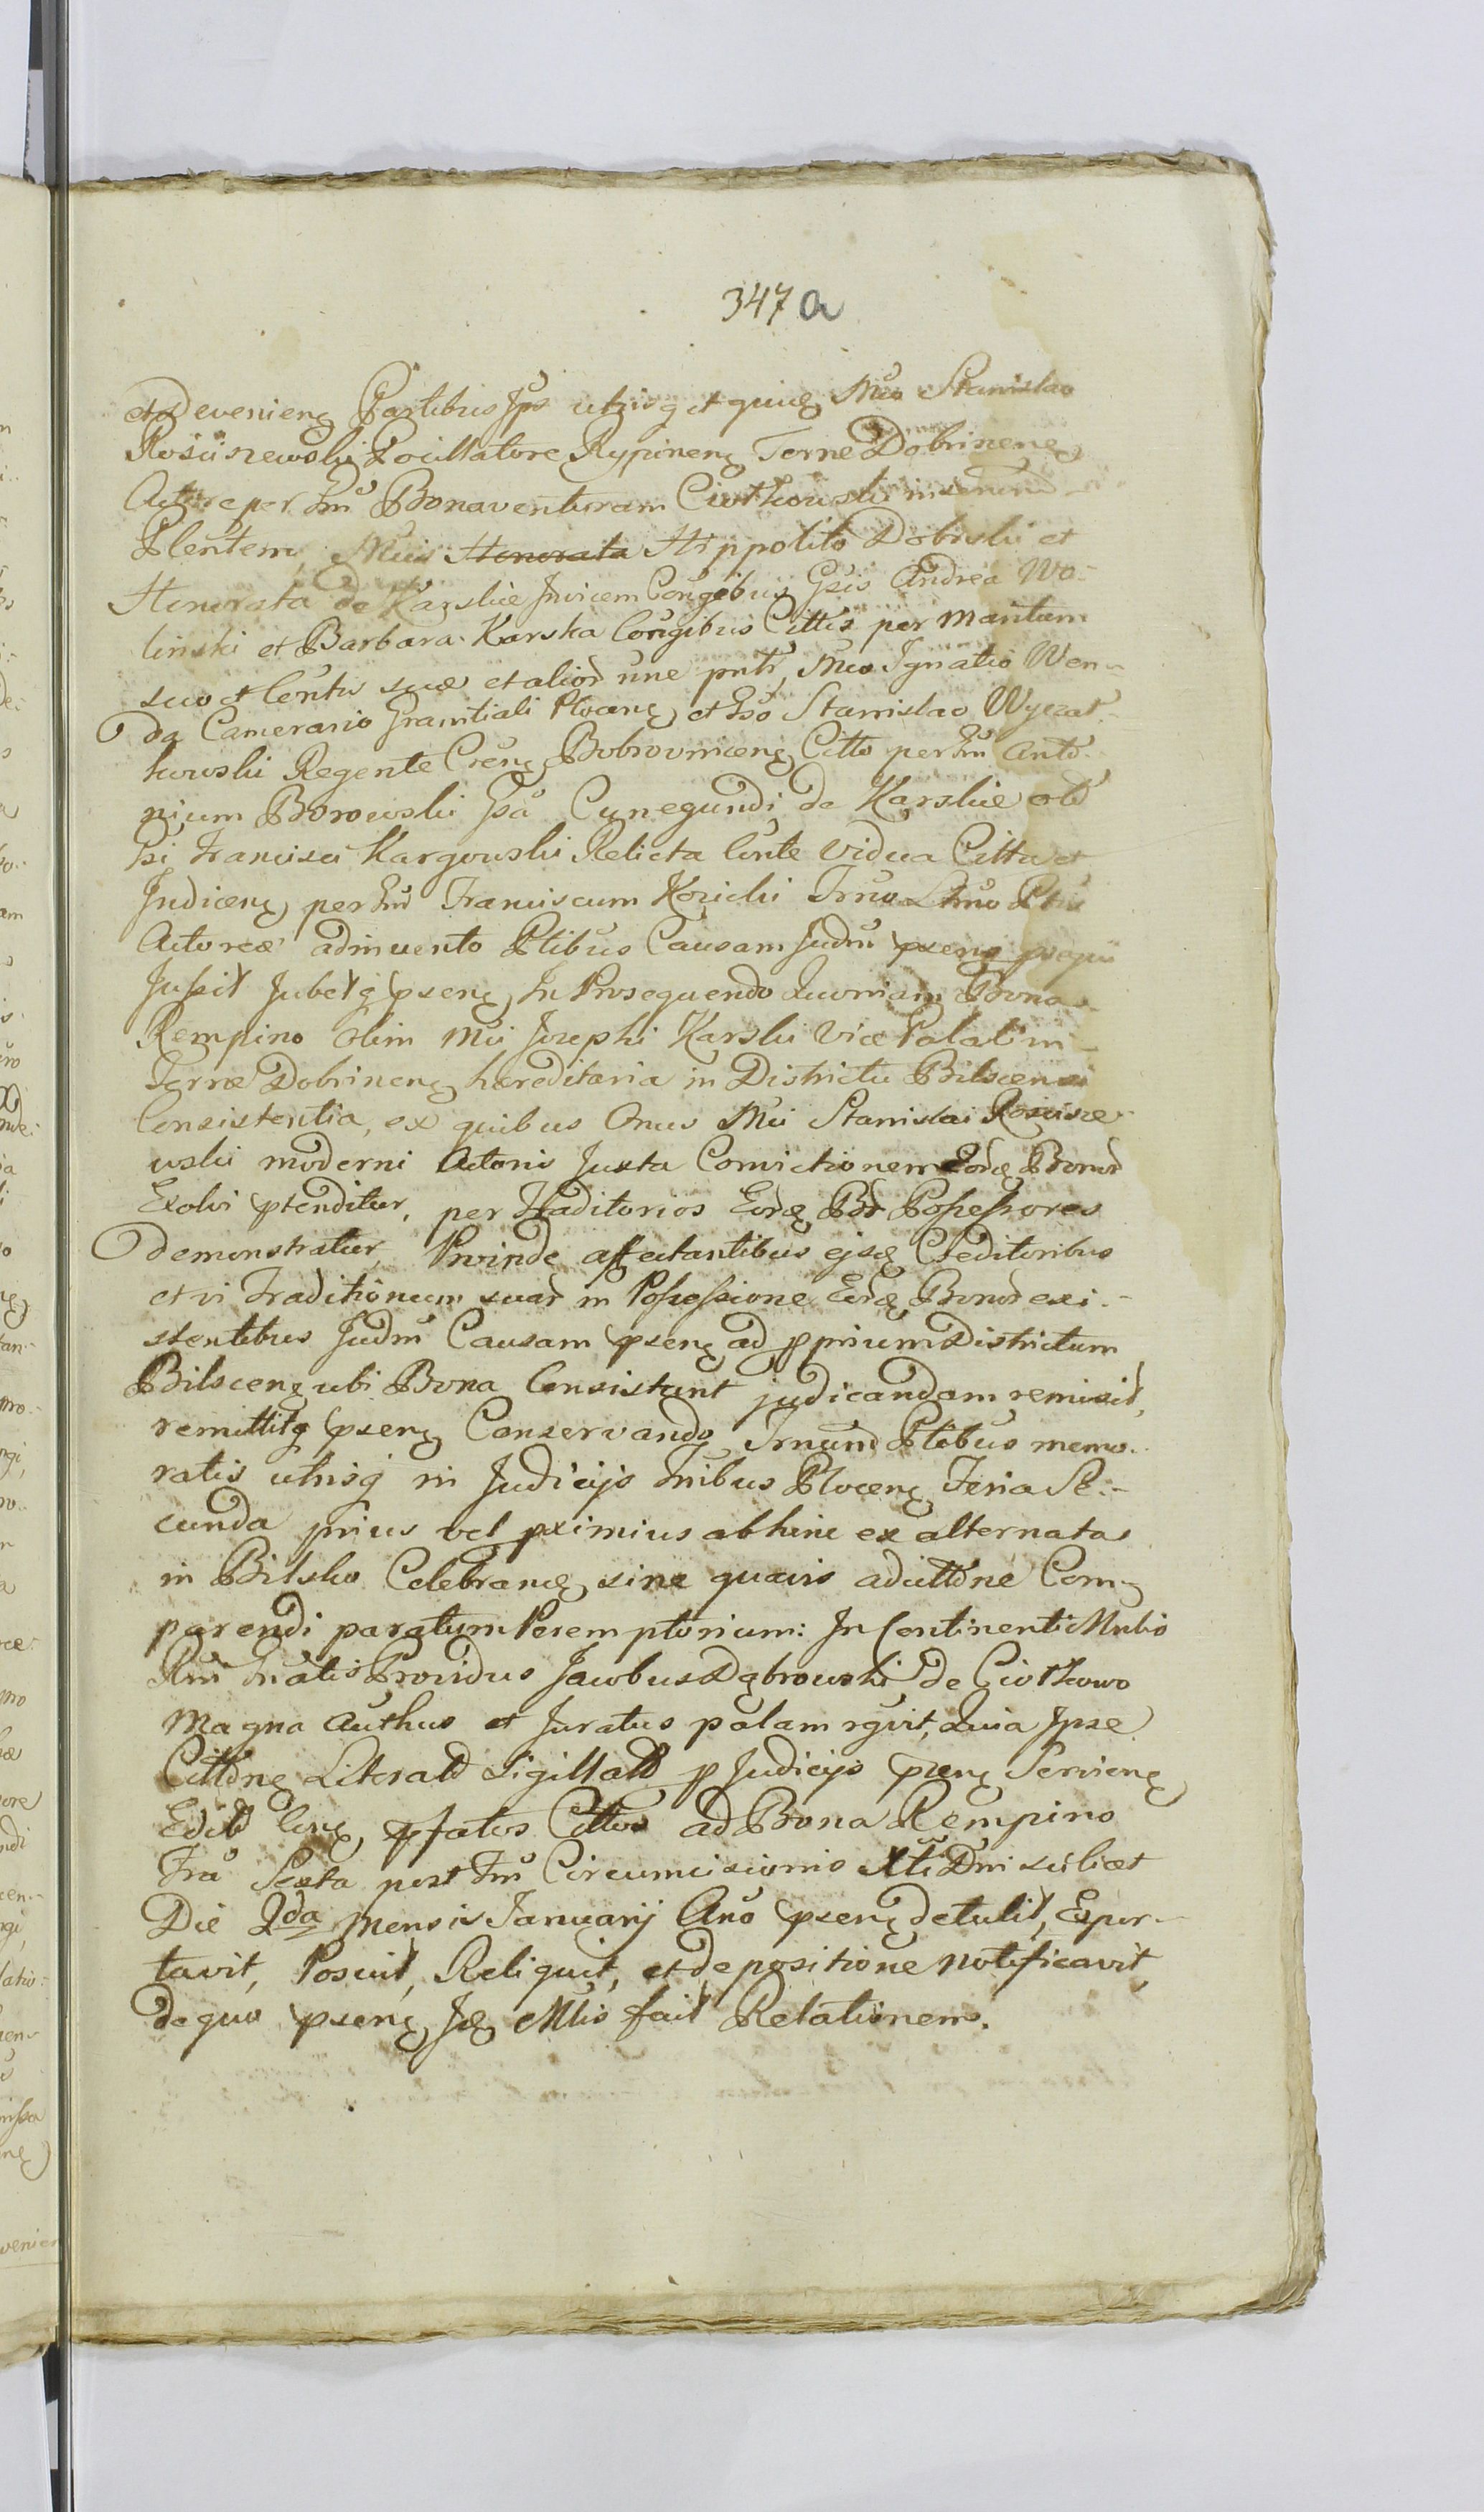 347 a
et Devenieng Partibus Jps utrisq et quidē Mco Stanislao
Rościszewski Pocillatore Rypineng Terrae Dobrineng
Actore per Gsum Bonaventuram Ciołkowski
Plentem, Mcis Honorata Hippolito Dobrski et
Honorata de Karskie Invicem Conjgibus Gsis Andrea Wo-
linski et Barbara Karska Conjgibus Cittis per Maritum
suo et Contu suae et aliod une pnti, Mco Ignatio Wen-
da Camerario Granitiali Ploceng et Gso Stanislao Wyczał-
kowski Regente Crens Bobrovniceng Citto per Gsum Anto-
nium Borowski Gsa Cunegundi de Karskie olī
Gsi Francisci Kargowski Relicta Conte Vidua Citta et
Judiceng per Gsum Franciscum Kozicki Trno
Actoreae adinvento Ptibus Causam Judm pseng
Jussit Jubetq pseng, In Prosequendo Quoniam Bona
Rempino Olim Mci Josephi Karski Vice Palatini
Terrae Dobrineng hereditaria in Districtu Bilscensi
Consistentia, ex quibus Onus Mci Stanislai Roscisze-
wski moderni Actoris Juxta Convictionem Eordg Bonor
Exolvi ptenditur, per Traditorios Eordg Bor Possessores
demonstratur, Proinde affectantibus ejsdg Creditoribus
et vi Traditionum suar in Possessione Eordg Bonor exi-
stentibus Judm Causam pseng ad pprium Districtum
Bilsceng ubi Bona Consistunt judicandam remisit,
remittitq pseng Conservando Trnum Ptibus memo-
ratis utrisq in Judicijs Tribus Ploceng Feria Se-
cunda prius vel pximius abhinc ex alternata
in Bilsko Celebrandg sine quavis adcittone Com-
parendi paratum Peremptorium: In Continenti Mnlis
Rni Gnalis Providus Jacobus Dąbrowski de Ciołkowo
Magna Authus et Juratus palam rgvit, Quia Ipse
Cittong Literald Sigillatd p Judicijs pseng Servieng
Edit Cong pfatos Cittos ad Bona Rempino
Fra Sexta post Fm Circumcisionis Xti Dni scilicet
Die 2da Mensis Januarij Ano pseng detulit, Expor-
tavit, Posuit, Reliquit, et de positione notificavit,
de quo pseng Jdg Mlis fecit Relationem.